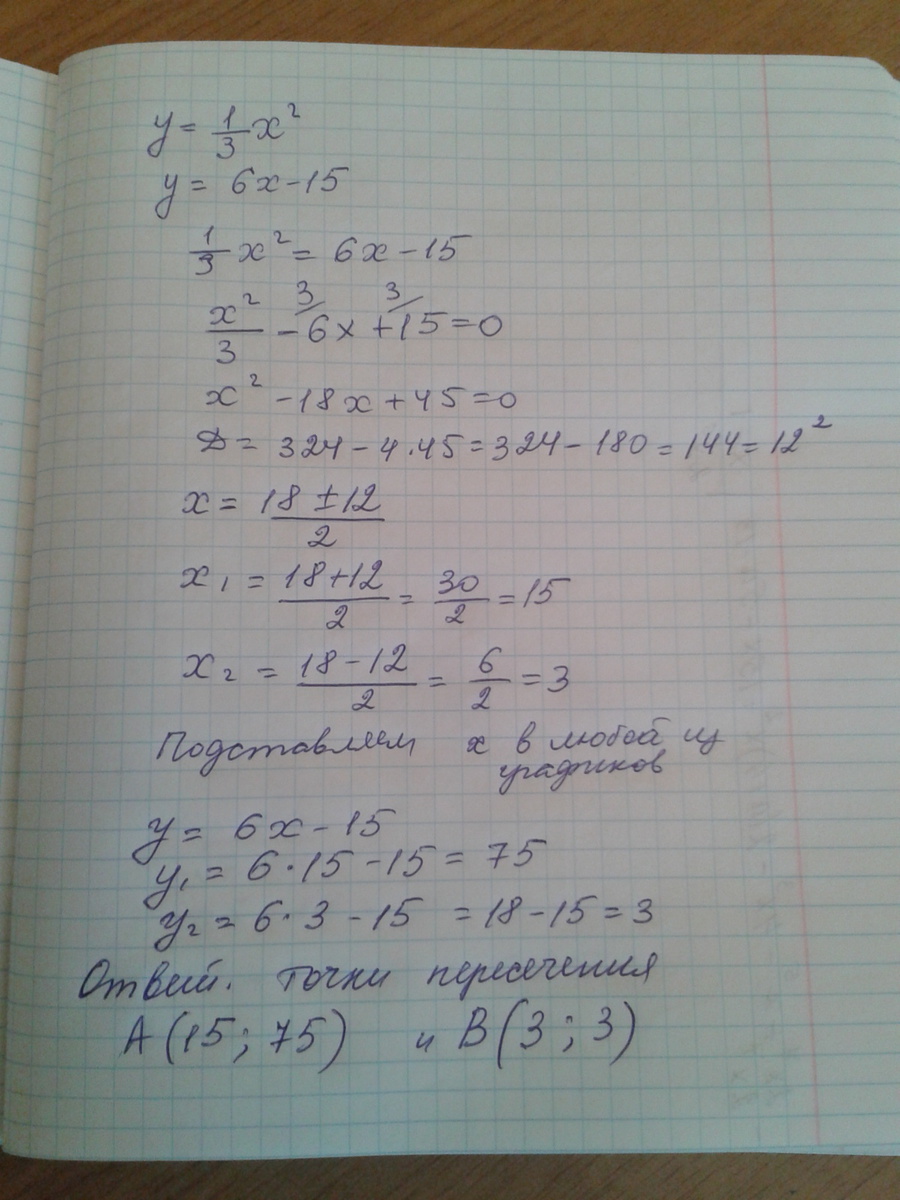 y = 1/3 x²
y = 6x - 15
1/3 x² = 6x - 15
x²/3 - 6x³⁄ + 15³⁄ = 0
x² - 18x + 45 = 0
D = 324 - 4·45 = 324 - 180 = 144 = 12²
x = (18 ± 12)/2
x₁ = (18+12)/2 = 30/2 = 15
x₂ = (18-12)/2 = 6/2 = 3
Подставляем x в любой из
графиков
y = 6x - 15
y₁ = 6·15 - 15 = 75
y₂ = 6·3 - 15 = 18 - 15 = 3
Ответ. точки пересечения
A(15; 75) и B(3; 3)